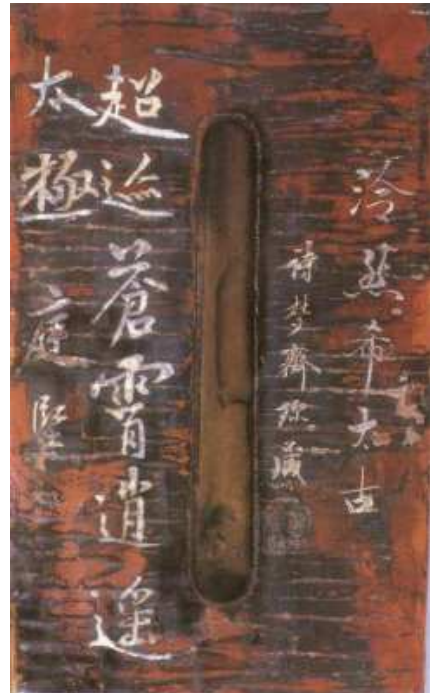 泠然希太古
詩夢齋珍藏
超迹蒼霄逍遥
太極 庭堅